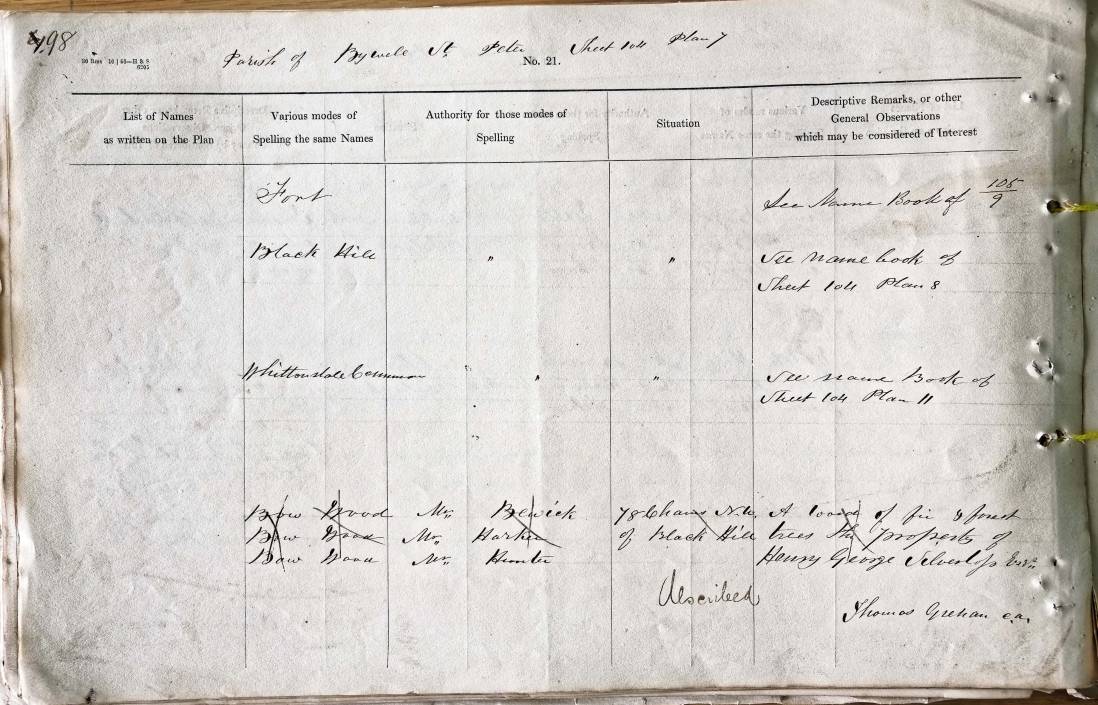 498
Parish of Bywell St. Peter Sheet 104 Plan 7
No. 21.
List of Names
as written on the Plan
Various modes of
Spelling the same Names
Authority for those modes of
Spelling
Situation
Descriptive Remarks, or other
General Observations
which may be considered of Interest
Fort See Name Book of 105/9
Black Hill " " See name book of
Sheet 104 Plan 8
Whittonstall Common " " See name Book of
Sheet 104 Plan 11
Bow Wood Mr. Bewick 78 Chains N.W. A wood of fir & forest
Bow Wood Mr. Harker of Black Hill trees the property of
Bow Wood Mr. Hunter Henry George Silvertop Esqr.
Described
Thomas c.a.